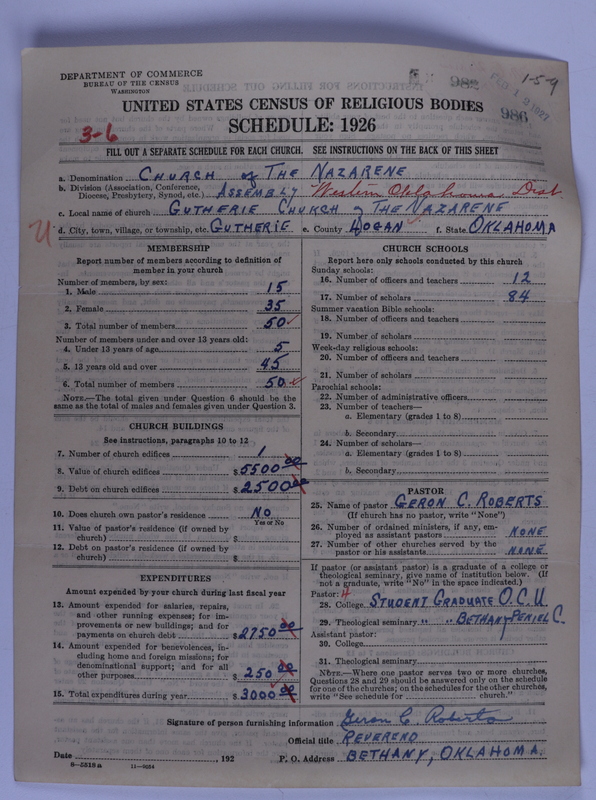 DEPARTMENT OF COMMERCE
BUREAU OF THE CENSUS
WASHINGTON
982
1-5-9
FEB 19 1927
986
UNITED STATES CENSUS OF RELIGIOUS BODIES
SCHEDULE: 1926
3-6
FILL OUT A SEPARATE SCHEDULE FOR EACH CHURCH. SEE INSTRUCTIONS ON THE BACK OF THIS SHEET
a. Denomination CHURCH of THE NAZARENE
b. Division (Association, Conference, Diocese, Presbytery, Synod, etc.) ASSEMBLY Western Oklahoma Dist
c. Local name of church GUTHERIE CHURCH of THE NAZARENE
U d. City, town, village, or township, etc. GUTHERIE e. County LOGAN f. State OKLAHOMA
MEMBERSHIP
Report number of members according to definition of member in your church
Number of members, by sex:
1. Male 15
2. Female 35
3. Total number of members 50
Number of members under and over 13 years old:
4. Under 13 years of age 5
5. 13 years old and over 45
6. Total number of members 50
NOTE.—The total given under Question 6 should be the same as the total of males and females given under Question 3.
CHURCH BUILDINGS
See instructions, paragraphs 10 to 12
7. Number of church edifices 1
8. Value of church edifices $5500 00
9. Debt on church edifices $2500 00
10. Does church own pastor's residence NO
Yes or No
11. Value of pastor's residence (if owned by church) $
12. Debt on pastor's residence (if owned by church) $
EXPENDITURES
Amount expended by your church during last fiscal year
13. Amount expended for salaries, repairs, and other running expenses; for improvements or new buildings; and for payments on church debt $2750 00
14. Amount expended for benevolences, including home and foreign missions; for denominational support; and for all other purposes $250 00
15. Total expenditures during year $3000 00
CHURCH SCHOOLS
Report here only schools conducted by this church
Sunday schools:
16. Number of officers and teachers 12
17. Number of scholars 84
Summer vacation Bible schools:
18. Number of officers and teachers
19. Number of scholars
Week-day religious schools:
20. Number of officers and teachers
21. Number of scholars
Parochial schools:
22. Number of administrative officers
23. Number of teachers—
a. Elementary (grades 1 to 8)
b. Secondary
24. Number of scholars—
a. Elementary (grades 1 to 8)
b. Secondary
PASTOR
25. Name of pastor GERON C. ROBERTS
(If church has no pastor, write "None")
26. Number of ordained ministers, if any, employed as assistant pastors NONE
27. Number of other churches served by the pastor or his assistants NONE
If pastor (or assistant pastor) is a graduate of a college or theological seminary, give name of institution below. (If not a graduate, write "No" in the space indicated.)
Pastor: 4
28. College STUDENT GRADUATE O.C.U.
29. Theological seminary " " BETHANY PENIEL C.
Assistant pastor:
30. College
31. Theological seminary
NOTE.—Where one pastor serves two or more churches, Questions 28 and 29 should be answered only on the schedule for one of the churches; on the schedules for the other churches, write "See schedule for church."
Signature of person furnishing information Geron C. Roberts
Official title REVEREND
Date , 192 P. O. Address BETHANY, OKLAHOMA.
8-5518a 11-9654